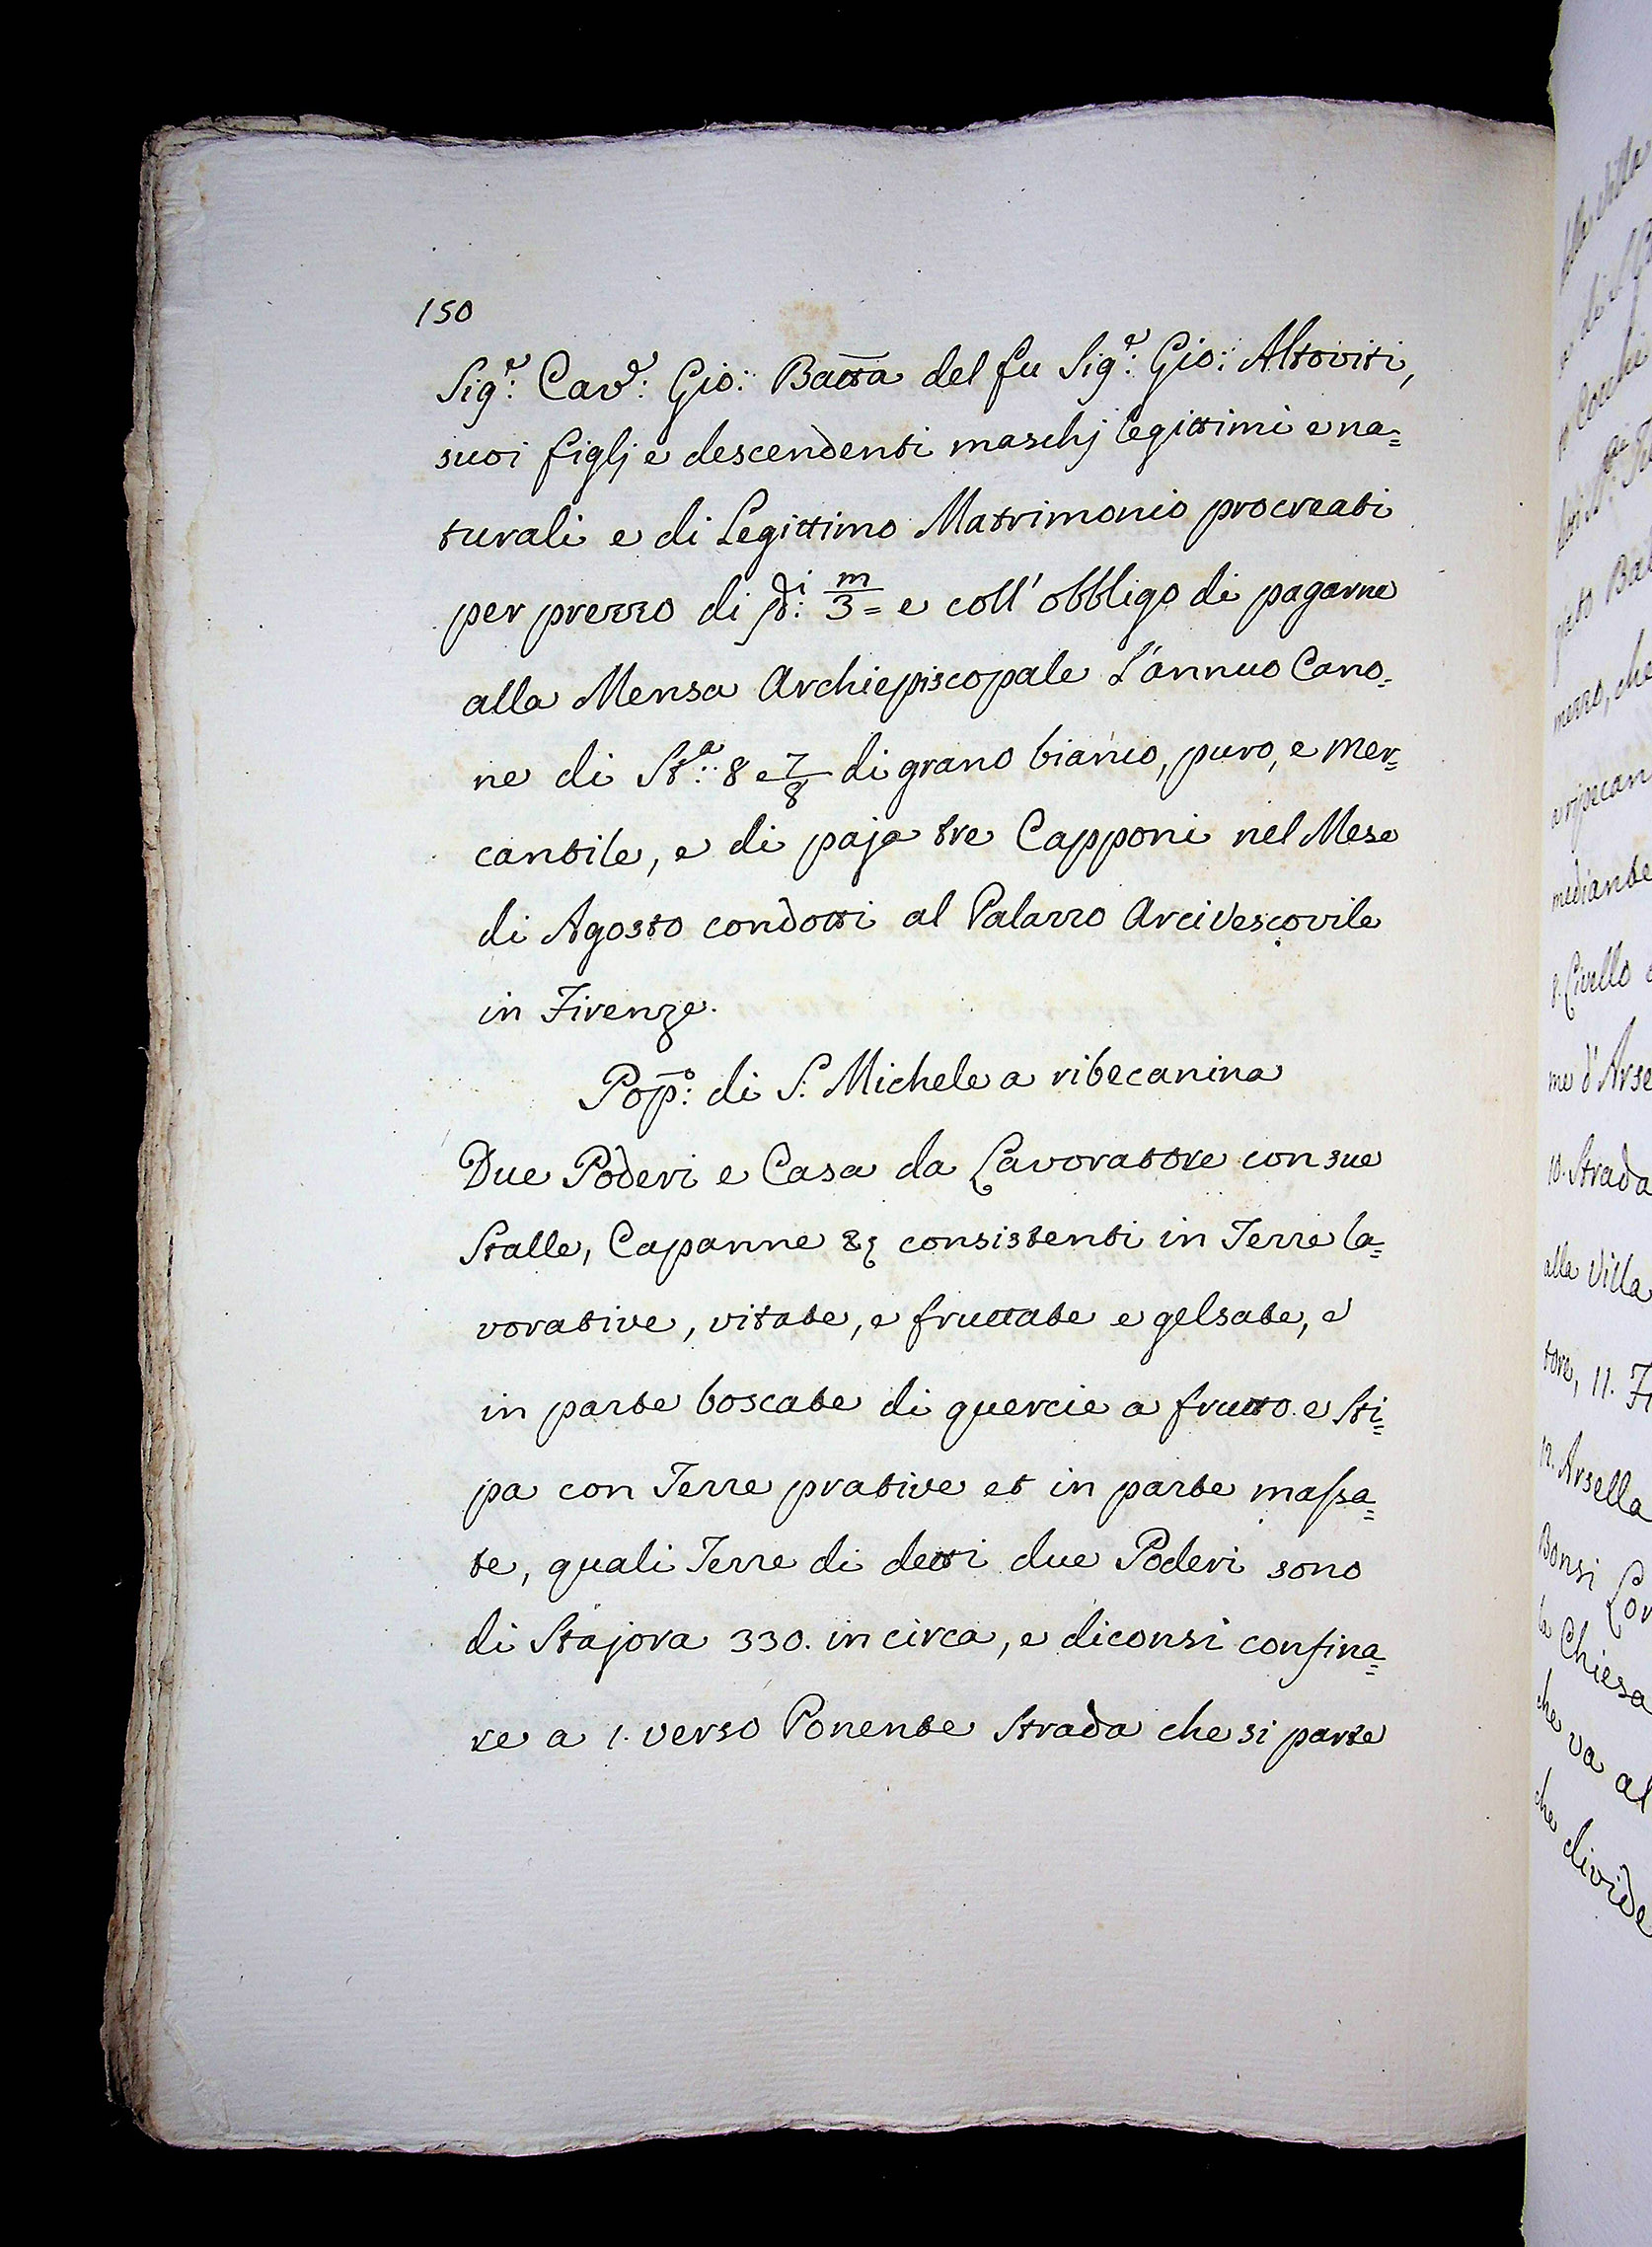 150
Sig.e: Cav.e: Gio: Batta del fu Sig.e: Gio: Altoviti,
suoi figlj e descendenti maschj legittimi e na=
turali e di Legittimo Matrimonio procreati
per prezzo di di: m/3= e coll' obbligo di pagarne
alla Mensa Archiepiscopale L'annuo Cano=
ne di St.a: 8 e 7/8 di grano bianco, puro, e mer=
cantile, e di paja tre Capponi nel Mese
di Agosto condotti al Palazzo Arcivescovile
in Firenze.
Pop.o: di S. Michele a ribecanina
Due Poderi e Casa da Lavoratore con sue
Stalle, Capanne &c consistenti in Terre la=
vorative, vitate, e fruttate e gelsate, e
in parte boscate di quercie a frutto e sti=
pa con Terre prative et in parte massa=
te, quali Terre di detti due Poderi sono
di Stajora 330. in circa, e diconsi confina=
re a 1. verso Ponente Strada che si parte
della Villa
Cocchi
mezzo, che
mediante
8. Livello
me d'Arse
10. Strada
alla Villa
tore, 11. Fi
12. Arsella
Bonsi Lor
la Chiesa
che va al
che divide